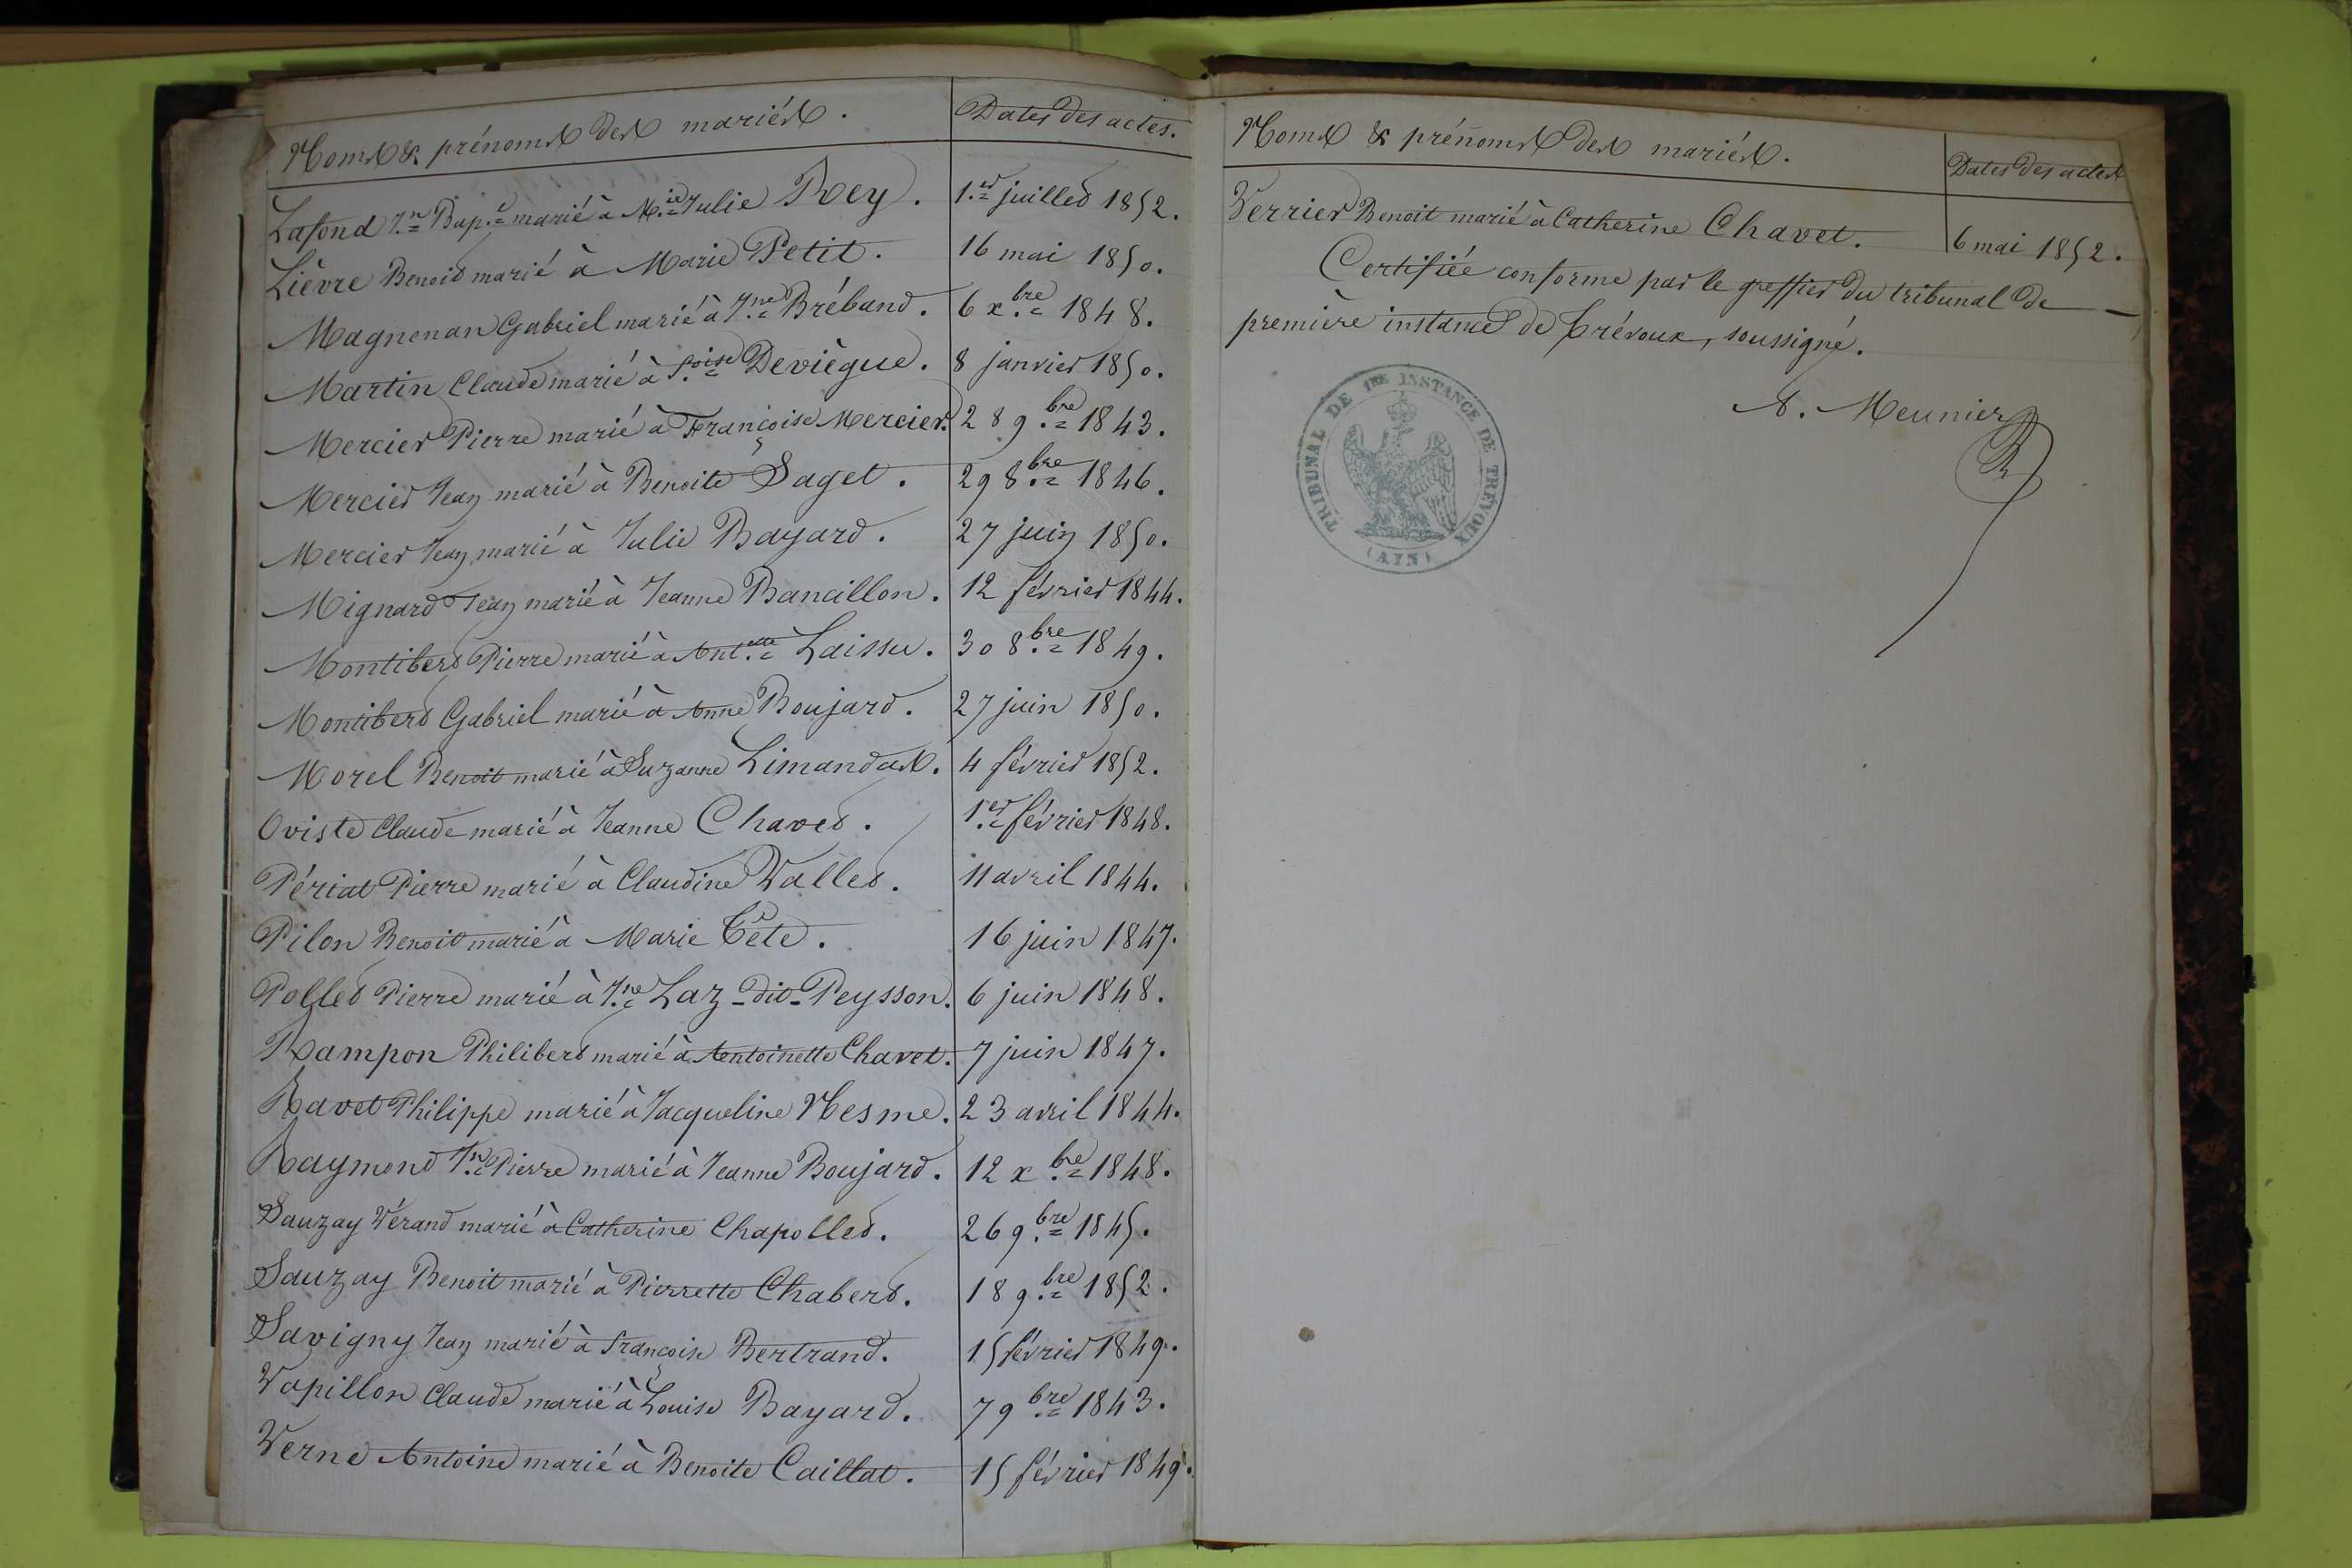 Noms & prénoms des mariés. Dates des actes.
Lafond Jn Bapte marié à Mie Julie Rey. 1er juillet 1852.
Lièvre Benoit marié à Marie Petit. 16 mai 1850.
Magnenan Gabriel marié à Jne Préband. 6 xbre 1848.
Martin Claude marié à foise Deviègue. 8 janvier 1850.
Mercier Pierre marié à Françoise Mercier. 28 9bre 1843.
Mercier Jean marié à Benoite Saget. 29 8bre 1846.
Mercier Jean marié à Julie Bayard. 27 juin 1850.
Mignard Jean marié à Jeanne Bancillon. 12 février 1844.
Montibert Pierre marié à Antette Laissu. 30 8bre 1849.
Montibert Gabriel marié à Anne Boujard. 27 juin 1850.
Morel Benoit marié à Suzanne Limandas. 4 février 1852.
Oviste Claude marié à Jeanne Chavet. 1er février 1848.
Périat Pierre marié à Claudine Vallet. 11 avril 1844.
Pilon Benoit marié à Marie Tête. 16 juin 1847.
Pollet Pierre marié à Jne Laz-dit-Peysson. 6 juin 1848.
Rampon Philibert marié à Antoinette Chavet. 7 juin 1847.
Ravet Philippe marié à Jacqueline Nesme. 23 avril 1844.
Raymond Jn Pierre marié à Jeanne Boujard. 12 xbre 1848.
Sauzay Vérand marié à Catherine Chapollet. 26 9bre 1845.
Sauzay Benoit marié à Pierrette Chabert. 18 9bre 1852.
Savigny Jean marié à françoise Bertrand. 15 février 1849.
Vapillon Claude marié à Louise Bayard. 7 9bre 1843.
Verne Antoine marié à Benoite Caillat. 15 février 1849.
Noms & prénoms des mariés. Dates des actes
Verrier Benoit marié à Catherine Chavet. 6 mai 1852.
Certifiée conforme par le greffier du tribunal de
première instance de Trévoux, soussigné.
A. Meunier
TRIBUNAL DE 1RE INSTANCE DE TREVOUX
(AIN)